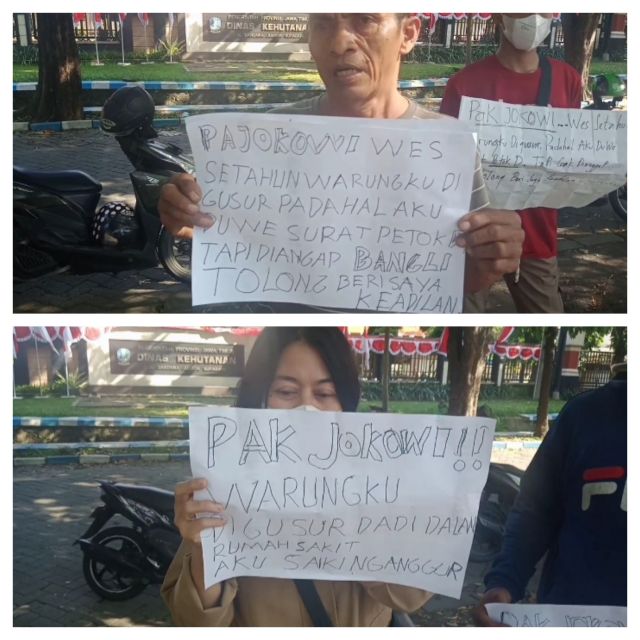 PEMERINTAH PROVINSI JAWA TIMUR
DINAS KEHUTANAN
PAJOKOWI WES
SETAHUN WARUNGKU DI
GUSUR PADAHAL AKU
DUWE SURAT PETOK
TAPI DIANGAP BANGLI
TOLONG BERI SAYA
KEADILAN
PAK JOKOWI... Wes Setahu
Digusur Padahal Aku Duwe
PEMERINTAH PROVINSI JAWA TIMUR
DINAS KEHUTANAN
PAK JOKOWI!!
WARUNGKU
DI GUSUR DADI DALAN
RUMAH SAKIT
AKU SAIKI NGANGGUR
F
PAK